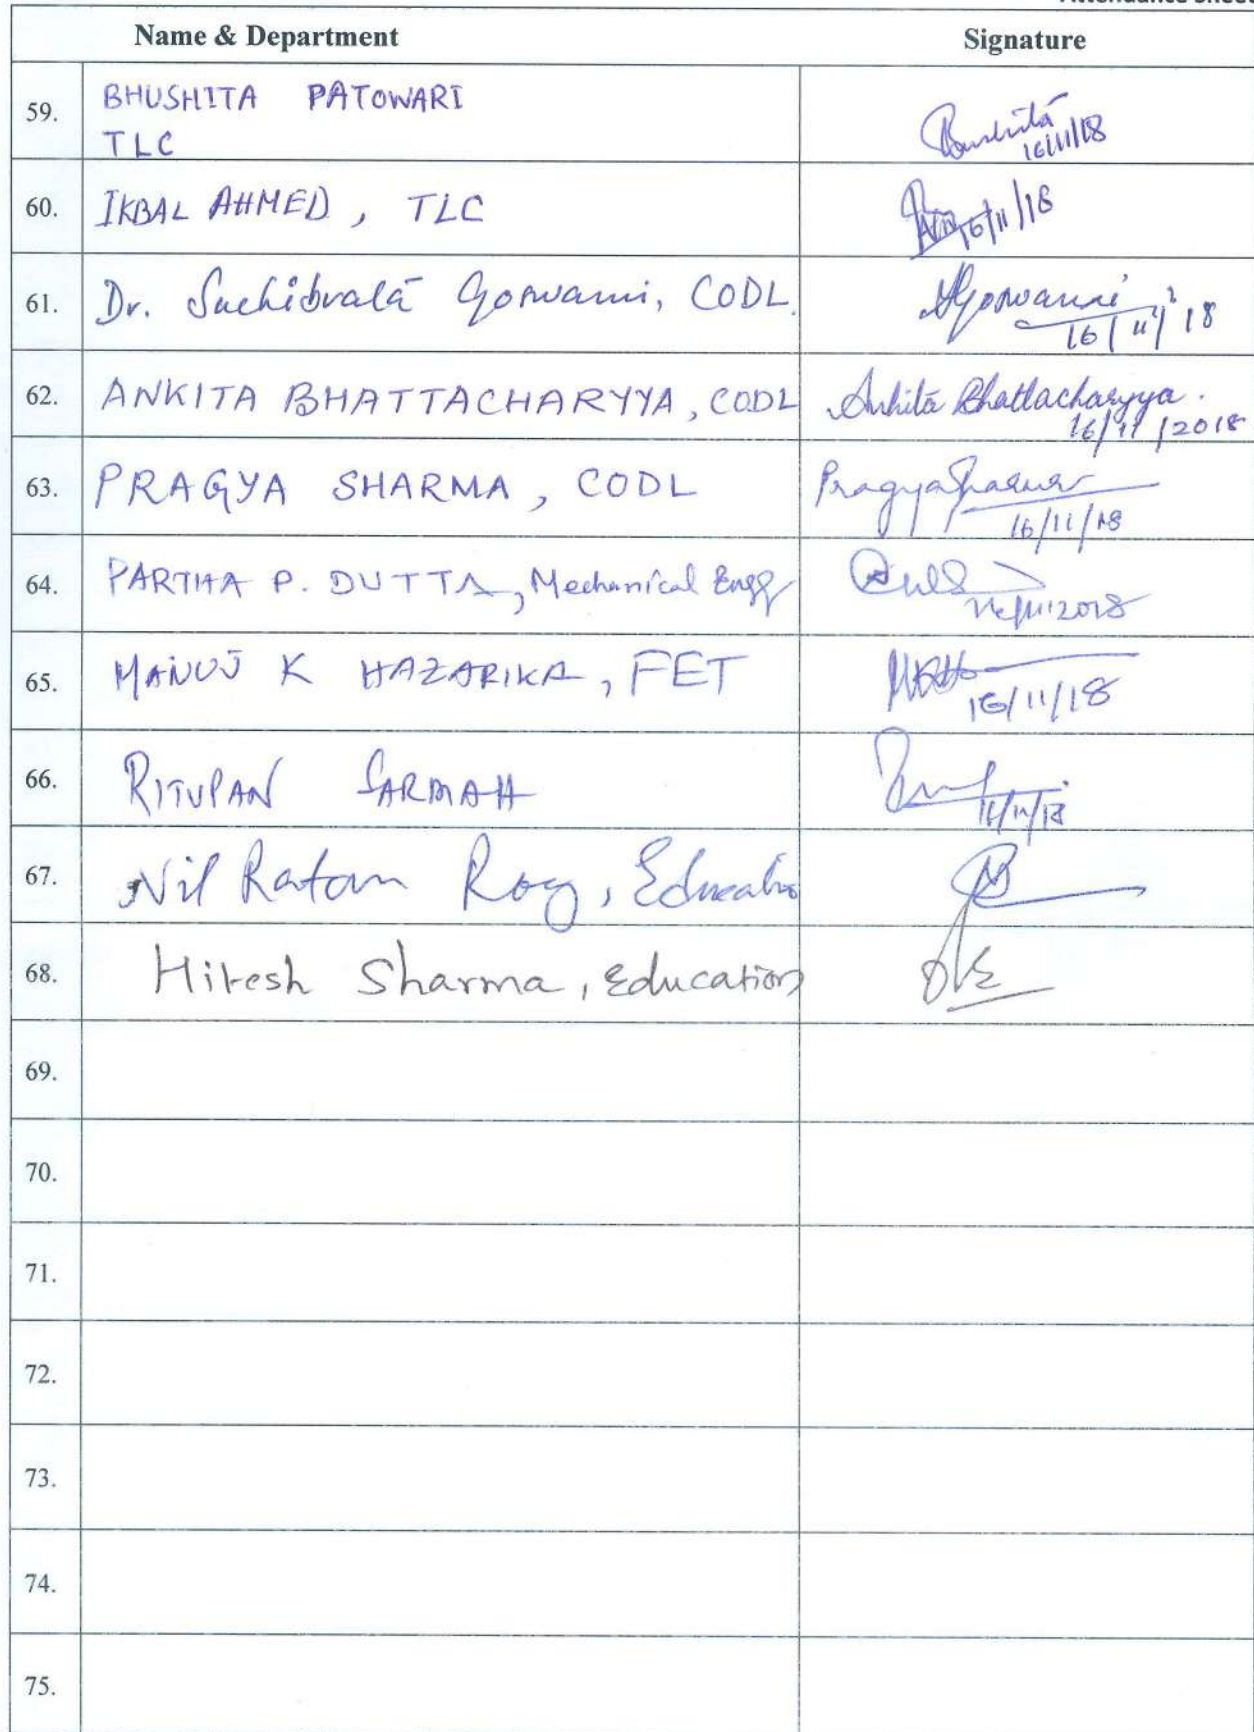 Attendance Sheet
Name & Department Signature
59. BHUSHITA PATOWARI
TLC
Bushita
16/11/18
60. IKBAL AHMED, TLC
16/11/18
61. Dr. Suchibrata Goswami, CODL. Goswami
16/11/18
62. ANKITA BHATTACHARYYA, CODL Ankita Bhattacharyya.
16/11/2018
63. PRAGYA SHARMA, CODL Pragya Sharma
16/11/18
64. PARTHA P. DUTTA, Mechanical Engg
16/11/2018
65. MANUJ K HAZARIKA, FET
16/11/18
66. RITUPAN SARMAH
16/11/18
67. Nil Ratan Roy, Education
68. Hitesh Sharma, Education
69.
70.
71.
72.
73.
74.
75.